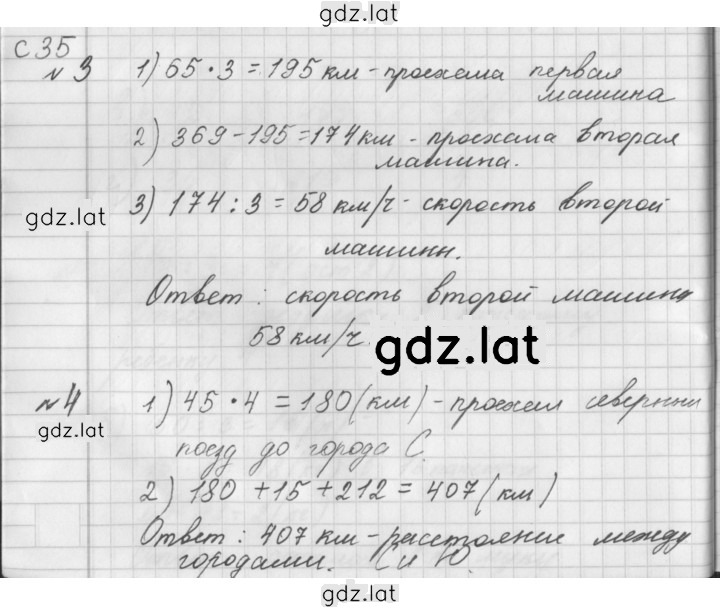 gdz.lat
С 35
№ 3 1) 65 · 3 = 195 км - проехала первая
машина
2) 369 - 195 = 174 км - проехала вторая
машина.
gdz.lat
3) 174 : 3 = 58 км/ч - скорость второй
машины.
Ответ: скорость второй машины
58 км/ч.
gdz.lat
№ 4 1) 45 · 4 = 180 (км) - проехал северный
gdz.lat
поезд до города С.
2) 180 + 15 + 212 = 407 (км)
Ответ: 407 км - расстояние между
городами. С и Ю.
gdz.lat